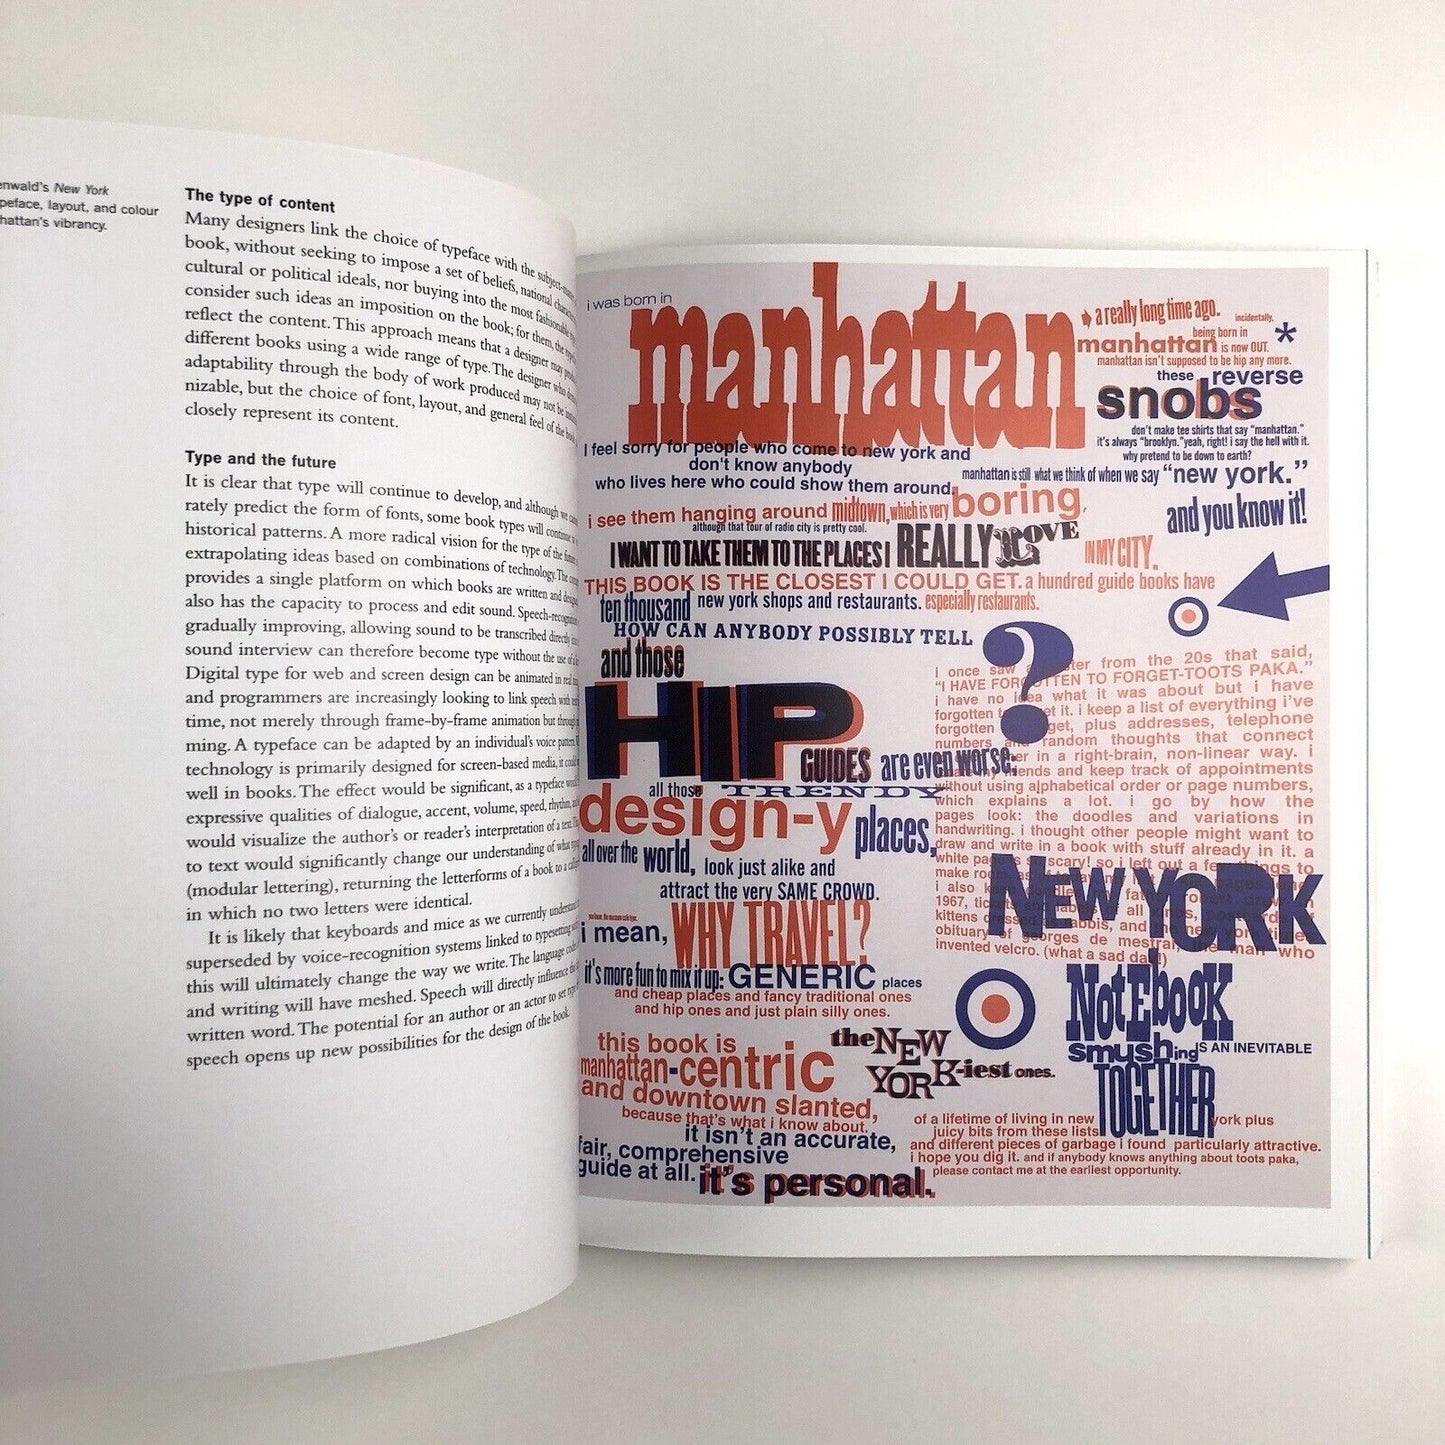 enwald's New York
peface, layout, and colour
hattan's vibrancy.
The type of content
Many designers link the choice of typeface with the
book, without seeking to impose a set of beliefs, national
cultural or political ideals, nor buying into the most fashionable
consider such ideas an imposition on the book; for them, the
reflect the content. This approach means that a designer may
different books using a wide range of type. The designer who
adaptability through the body of work produced may not be
nizable, but the choice of font, layout, and general feel of the book
closely represent its content.
Type and the future
It is clear that type will continue to develop, and although we
rately predict the form of fonts, some book types will continue
historical patterns. A more radical vision for the type of the future
extrapolating ideas based on combinations of technology. The
provides a single platform on which books are written and
also has the capacity to process and edit sound. Speech-
gradually improving, allowing sound to be transcribed directly
sound interview can therefore become type without the use of a
Digital type for web and screen design can be animated in real
and programmers are increasingly looking to link speech with
time, not merely through frame-by-frame animation but through
ming. A typeface can be adapted by an individual's voice pattern.
technology is primarily designed for screen-based media, it could
well in books. The effect would be significant, as a typeface would
expressive qualities of dialogue, accent, volume, speed, rhythm,
would visualize the author's or reader's interpretation of a text.
to text would significantly change our understanding of what
(modular lettering), returning the letterforms of a book to a
in which no two letters were identical.
It is likely that keyboards and mice as we currently understand
superseded by voice-recognition systems linked to typesetting
this will ultimately change the way we write. The language
and writing will have meshed. Speech will directly influence the
written word. The potential for an author or an actor to set type
speech opens up new possibilities for the design of the book.
i was born in
manhattan
a really long time ago.
incidentally,
being born in
manhattan is now OUT. *
manhattan isn't supposed to be hip any more.
these reverse
snobs
don't make tee shirts that say "manhattan."
it's always "brooklyn." yeah, right! i say the hell with it.
why pretend to be down to earth?
manhattan is still what we think of when we say "new york."
and you know it!
I feel sorry for people who come to new york and
don't know anybody
who lives here who could show them around.
i see them hanging around midtown, which is very boring,
although that tour of radio city is pretty cool.
I WANT TO TAKE THEM TO THE PLACES I REALLY LOVE IN MY CITY.
THIS BOOK IS THE CLOSEST I COULD GET. a hundred guide books have
ten thousand new york shops and restaurants. especially restaurants.
HOW CAN ANYBODY POSSIBLY TELL
?
and those
HIP
GUIDES are even worse.
all those TRENDY
design-y places,
all over the world, look just alike and
attract the very SAME CROWD.
i mean, WHY TRAVEL?
it's more fun to mix it up: GENERIC places
and cheap places and fancy traditional ones
and hip ones and just plain silly ones.
the NEW
YORK-iest ones.
this book is
manhattan-centric
and downtown slanted,
because that's what i know about.
it isn't an accurate,
fair, comprehensive
guide at all. it's personal.
i once saw a poster from the 20s that said,
"I HAVE FORGOTTEN TO FORGET-TOOTS PAKA."
i have no idea what it was about but i have
forgotten to get it. i keep a list of everything i've
forgotten get, plus addresses, telephone
numbers and random thoughts that connect
er in a right-brain, non-linear way. i
friends and keep track of appointments
without using alphabetical order or page numbers,
which explains a lot. i go by how the
pages look: the doodles and variations in
handwriting. i thought other people might want to
draw and write in a book with stuff already in it. a
white page is so scary! so i left out a few things to
make room,
i also
1967, tickets of all kinds, postcards of
kittens dressed as rabbis, and the new york times
obituary of georges de mestral, the man who
invented velcro. (what a sad day!)
NEW YORK
NOTEBOOK
smushing IS AN INEVITABLE
TOGETHER
of a lifetime of living in new york plus
juicy bits from these lists
and different pieces of garbage i found particularly attractive.
i hope you dig it. and if anybody knows anything about toots paka,
please contact me at the earliest opportunity.